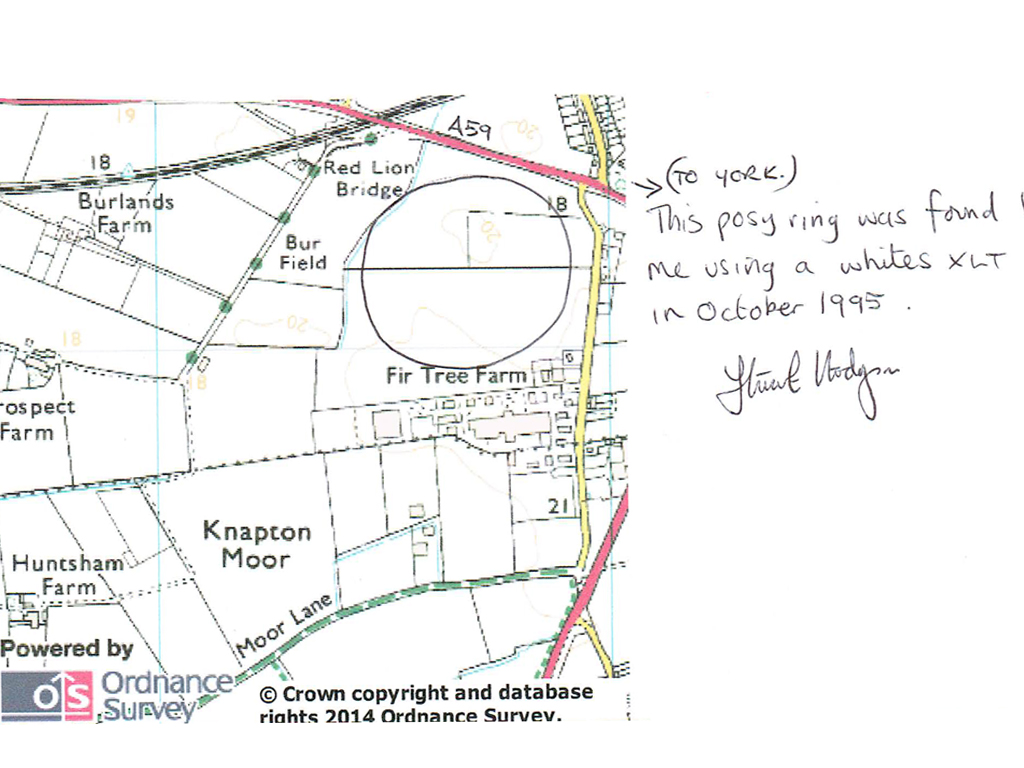 19
A59
20
18
Red Lion
Bridge
Burlands
Farm
18
20
Bur
Field
20
18
18
Fir Tree Farm
rospect
Farm
21
Knapton
Moor
Huntsham
Farm
Moor Lane
Powered by
OS Ordnance
Survey
© Crown copyright and database
rights 2014 Ordnance Survey.
(TO YORK.)
This posy ring was found
me using a whites XLT
in October 1995 .